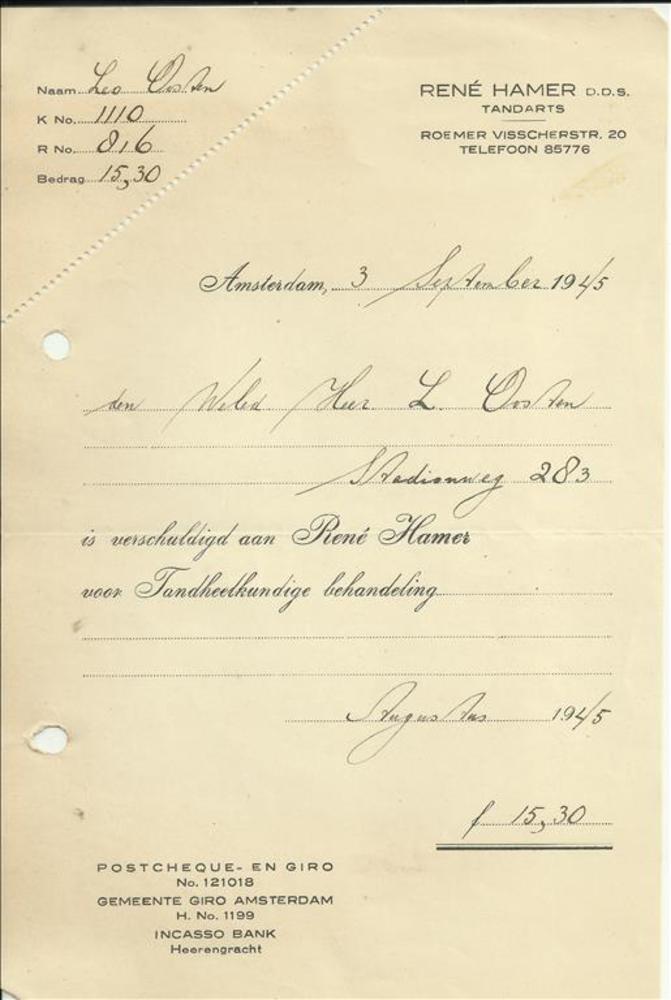 Naam Leo Oosten
K No. 1110
R No. 816
Bedrag 15,30
RENÉ HAMER D.D.S.
TANDARTS
ROEMER VISSCHERSTR. 20
TELEFOON 85776
Amsterdam, 3 September 1945
den Weled Heer L. Oosten
Stadionweg 283
is verschuldigd aan René Hamer
voor Tandheelkundige behandeling
Augustus 1945
f 15,30
POSTCHEQUE- EN GIRO
No. 121018
GEMEENTE GIRO AMSTERDAM
H. No. 1199
INCASSO BANK
Heerengracht